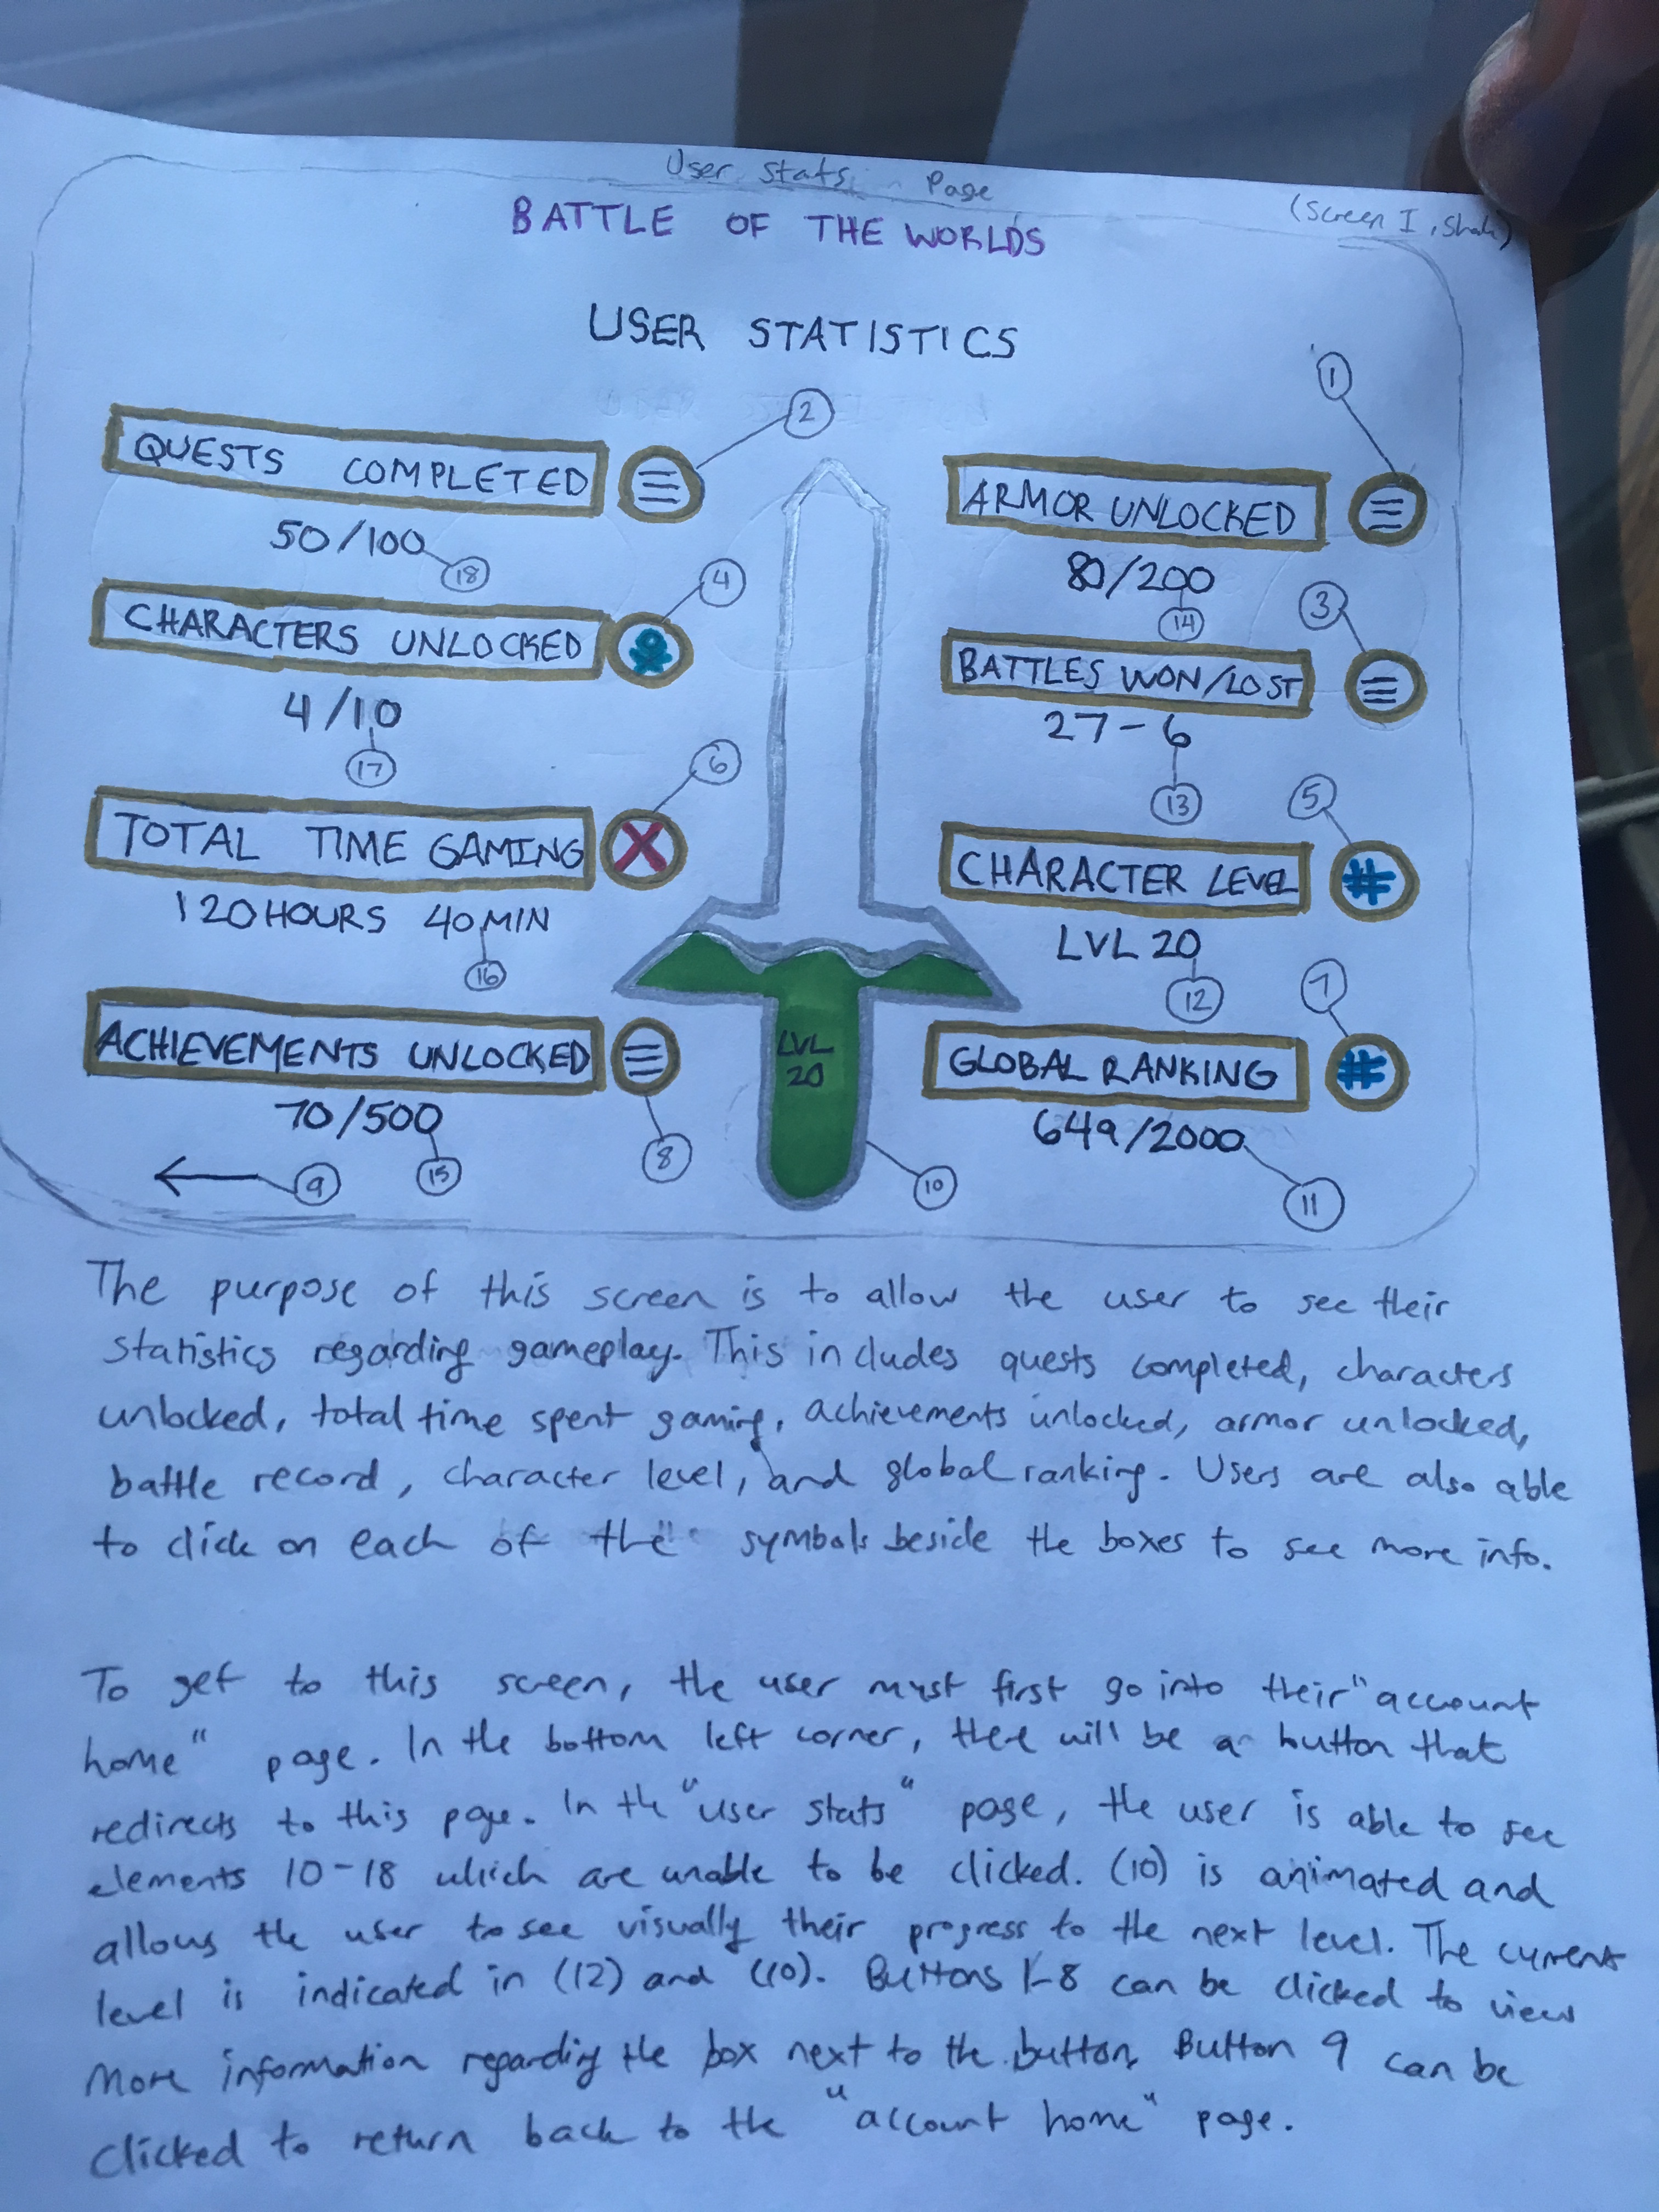 User Stats Page
(Screen I, Shah)
BATTLE OF THE WORLDS
USER STATISTICS
1
2
QUESTS COMPLETED
50/100
18
4
CHARACTERS UNLOCKED
4/10
17
6
TOTAL TIME GAMING
120 HOURS 40 MIN
16
ACHIEVEMENTS UNLOCKED
70/500
15
8
9
LVL
20
10
ARMOR UNLOCKED
80/200
14
3
BATTLES WON/LOST
27-6
13
5
CHARACTER LEVEL
#
LVL 20
12
7
GLOBAL RANKING
#
649/2000
11
The purpose of this screen is to allow the user to see their
statistics regarding gameplay. This includes quests completed, characters
unlocked, total time spent gaming, achievements unlocked, armor unlocked,
battle record, character level, and global ranking. Users are also able
to click on each of the symbols beside the boxes to see more info.
To get to this screen, the user must first go into their "account
home" page. In the bottom left corner, there will be a button that
redirects to this page. In the "user stats" page, the user is able to see
elements 10-18 which are unable to be clicked. (10) is animated and
allows the user to see visually their progress to the next level. The current
level is indicated in (12) and (10). Buttons 1-8 can be clicked to view
more information regarding the box next to the button. Button 9 can be
clicked to return back to the "account home" page.